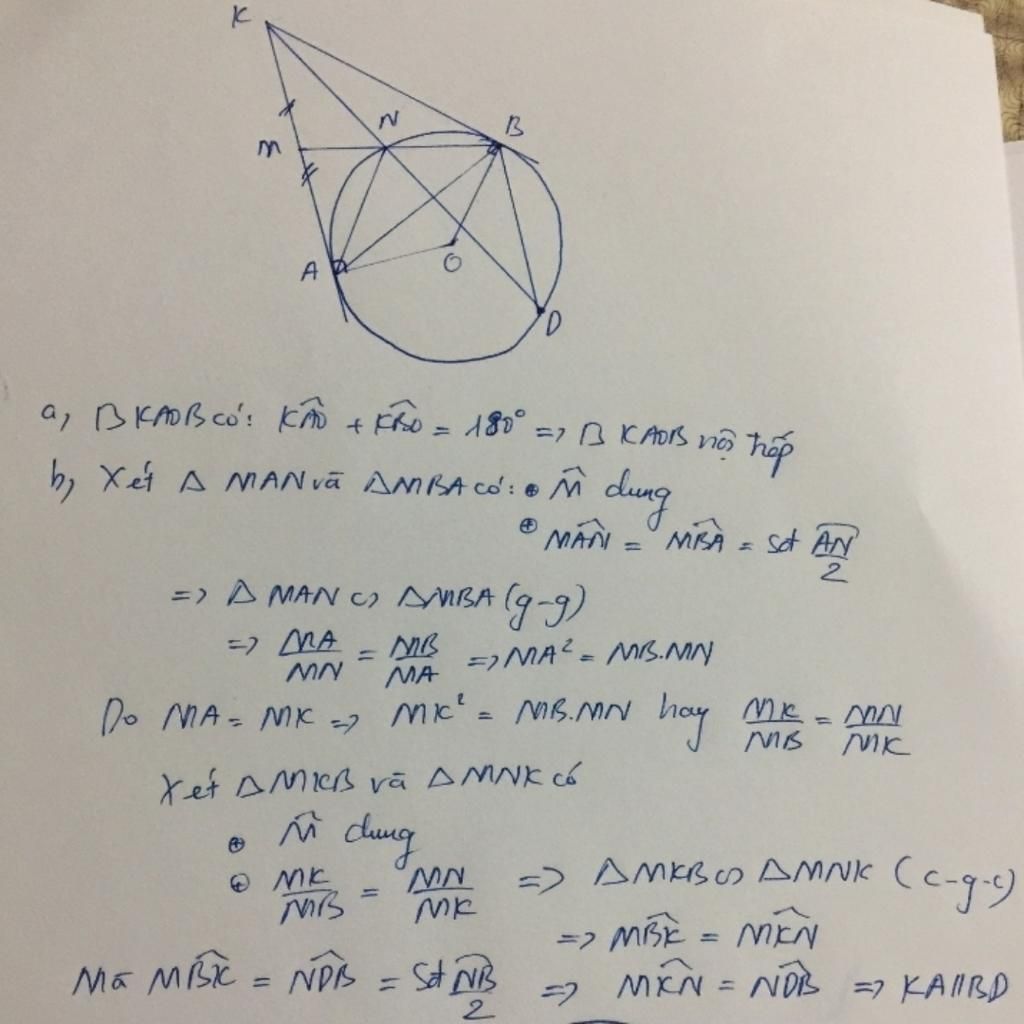 K
N
B
M
A
O
D
a, KAOB có: KÂO + KB̂O = 180° => KAOB nội tiếp
b, Xét Δ MAN và ΔMBA có: ⊕ M̂ chung
⊕ MÂN = MB̂A = sđ AN/2
=> Δ MAN ∽ ΔMBA (g-g)
=> MA/MN = MB/MA => MA² = MB.MN
Do MA = MK => MK² = MB.MN hay MK/MB = MN/MK
Xét ΔMKB và ΔMNK có
⊕ M̂ chung
⊕ MK/MB = MN/MK => ΔMKB ∽ ΔMNK (c-g-c)
=> MB̂K = MK̂N
Mà MB̂K = ND̂B = sđ NB/2 => MK̂N = ND̂B => KA//BD